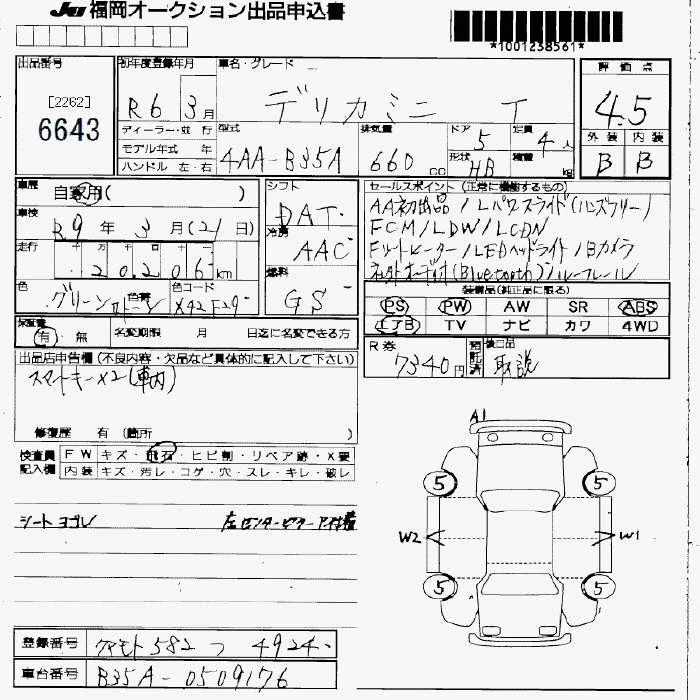 JU 福岡オークション出品申込書
*1001238561*
出品番号
[2262]
6643
初年度登録年月
R6 3月
車名・グレード
デリカミニ T
評価点
4.5
外装 内装
B B
ディーラー・並行
モデル年式 年
ハンドル 左・右
型式
4AA-B35A
排気量
660 cc
ドア
5
形状
HB
定員
4人
積量
kg
車歴
自家用( )
車検
R9年 3月(21日)
走行
十万 万 千 百 十
20206km
色
グリーン2トーン
色替
色コード
X42 F29
シフト
DAT
冷房
AAC
燃料
GS
セールスポイント(正常に機能するもの)
AA初出品/Lパワスライド(ハンズフリー)
FCM/LDW/LCDN
Fシートヒーター/LEDヘッドライト/Bカメラ
ネットオーディオ(Bluetooth)/ルーフレール
装備品(純正品に限る)
PS PW AW SR ABS
エアB TV ナビ カワ 4WD
保証書
有・無
名変期限 月 日迄に名変できる方
R券
7340円
預託済
後日品
取説
出品店申告欄(不良内容・欠品など具体的に記入して下さい)
スマートキーX2(車内)
修復歴 有(箇所 )
検査員記入欄
FW キズ・飛石・ヒビ割・リペア跡・X要
内装 キズ・汚レ・コゲ・穴・スレ・キレ・破レ
シートヨゴレ
左センターピラー
A1
5 5
W2 W1
5 5
登録番号
クマモト582 つ 4924
車台番号
B35A-0509176